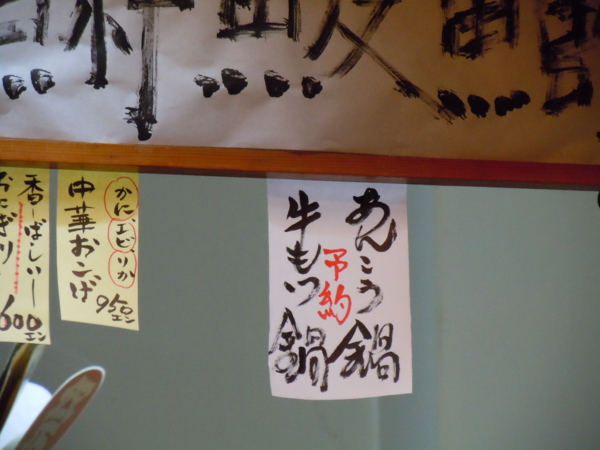 あんこう鍋
予約
牛もつ鍋
かに、エビ、いか
中華おこげ
950エン
香ーばしいー
おにぎり
600エン